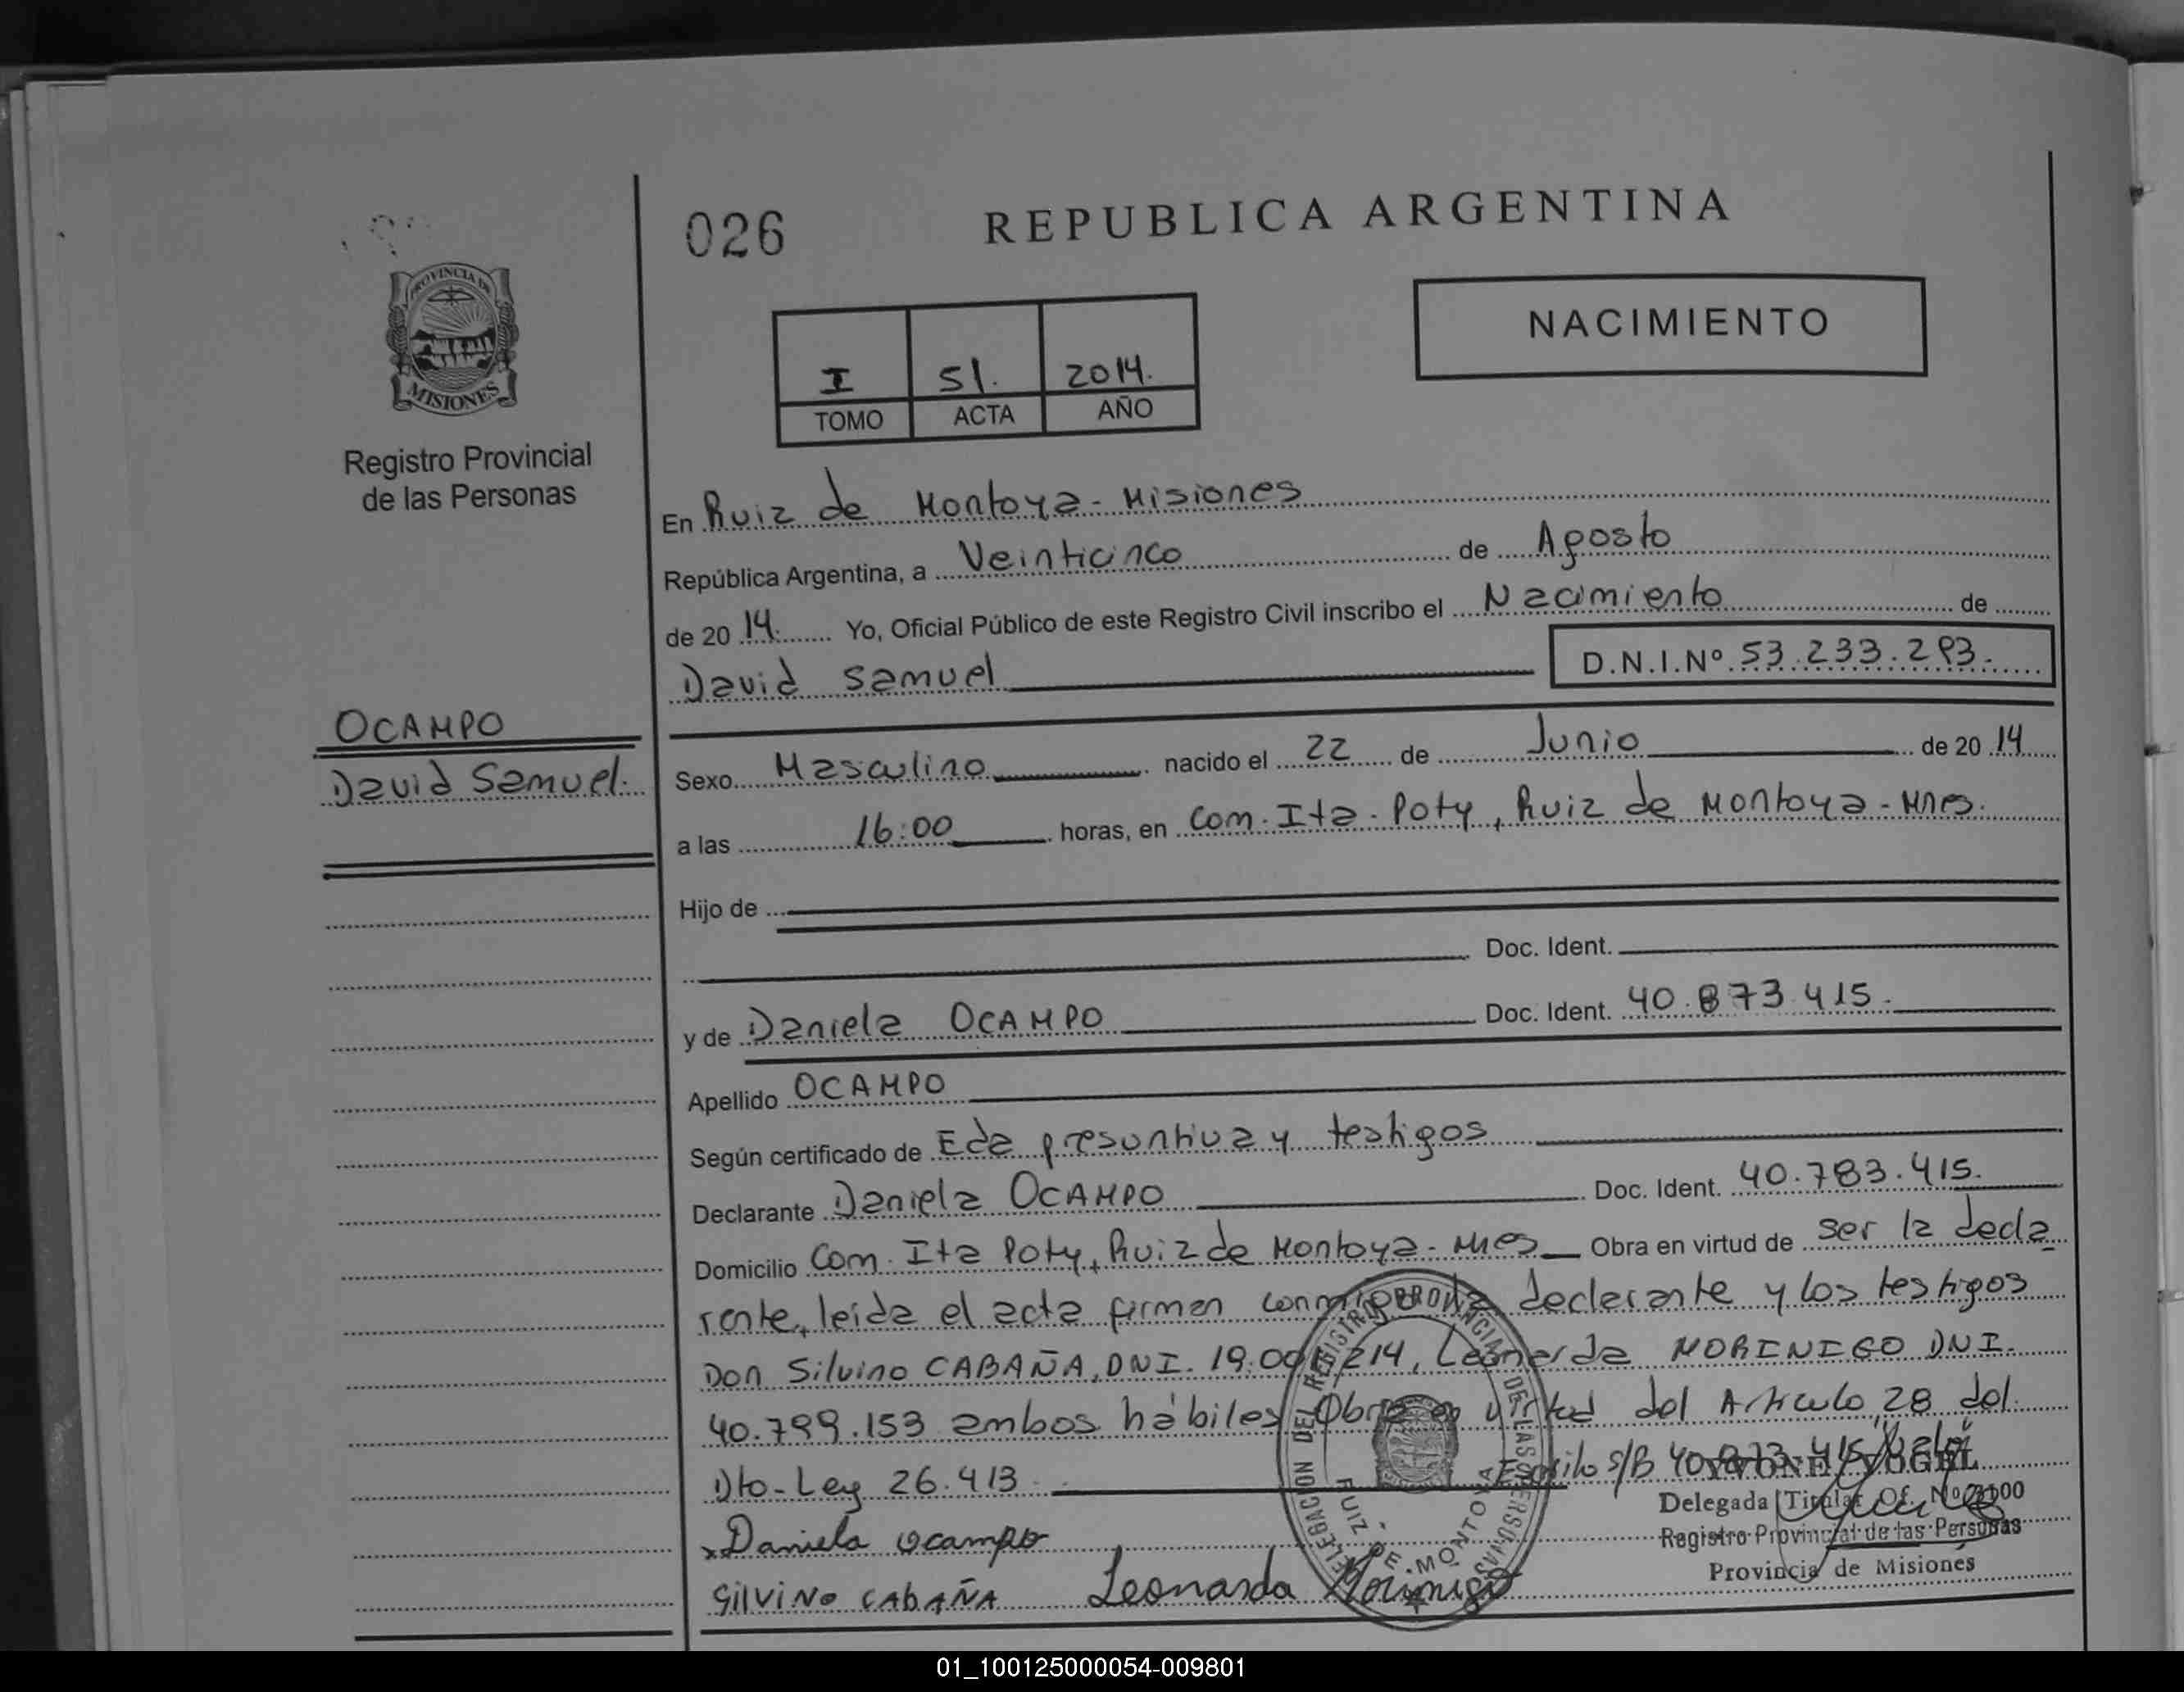 026
REPUBLICA ARGENTINA
PROVINCIA DE
MISIONES
NACIMIENTO
I 51. 2014.
TOMO ACTA AÑO
Registro Provincial
de las Personas
En Ruiz de Montoya - Misiones
República Argentina, a Veinticinco de Agosto
de 20 14. Yo, Oficial Público de este Registro Civil inscribo el Nacimiento de
David Samuel D.N.I.Nº 53.233.293.
OCAMPO
David Samuel.
Sexo Masculino nacido el 22 de Junio de 20 14
a las 16:00 horas, en Com. Ita - Poty, Ruiz de Montoya - Mnes.
Hijo de
Doc. Ident.
y de Daniela OCAMPO Doc. Ident. 40.873.415.
Apellido OCAMPO
Según certificado de Eda presuntiva y testigos
Declarante Daniela OCAMPO Doc. Ident. 40.783.415.
Domicilio Com. Ita Poty, Ruiz de Montoya - Mnes Obra en virtud de ser la decla
rante, leida el acta firman conmigo la declarante y los testigos
Don Silvino CABAÑA, DNI. 19.001.214, Leonarda MORINIGO DNI.
40.799.153 ambos hábiles Obra en virtud del Articulo 28 del
Dto-Ley 26.413. Escrito s/B 40.873.415 Vale
YVONE VOGEL
Delegada Titular Of. Nº 2100
Registro Provincial de las Personas
Provincia de Misiones
Daniela ocampo
SilViNo CAbAÑA Leonarda Morinigo
DELEGACION DEL REGISTRO PROVINCIAL DE LAS PERSONAS
RUIZ DE MONTOYA
01_100125000054-009801